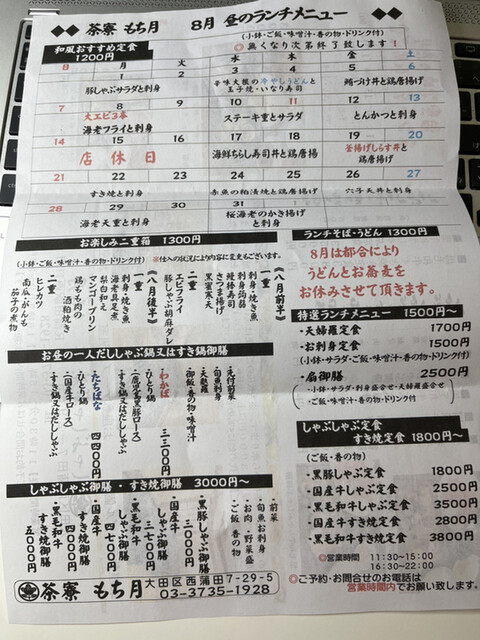 茶寮 もち月 8月 昼のランチメニュー
(小鉢・ご飯・味噌汁・香の物・ドリンク付)
和風おすすめ定食
1200円
◎無くなり次第終了致します!
日 月 火 水 木 金 土
1 2 3 4 5 6
豚しゃぶサラダと刺身
辛味大根の冷やしうどんと
玉子焼・いなり寿司
鯖づけ丼と鶏唐揚げ
7 8 9 10 11 12 13
大エビ3本
海老フライと刺身
ステーキ重とサラダ
とんかつと刺身
14 15 16 17 18 19 20
店休日
海鮮ちらし寿司丼と鶏唐揚
釜揚げしらす丼と
鶏唐揚げ
21 22 23 24 25 26 27
すき焼と刺身
赤魚の粕漬焼と鶏唐揚げ
穴子天丼と刺身
28 29 30 31
海老天重と刺身
桜海老のかき揚げ
と刺身
お楽しみ二重箱 1300円
(小鉢・ご飯・味噌汁・香の物・ドリンク付)
※仕入の状況により内容に変更もございます。
《八月前半》
一重
刺身・焼き魚
さつま揚げ
鰻棒寿司
刺身蒟蒻
黒蜜寒天
二重
エビフライ
豚しゃぶ胡麻ダレ
《八月後半》
一重
刺身・焼き魚
海老具足煮
梨白和え
マンゴープリン
二重
鶏もも肉の
酒粕焼き
ヒレカツ
南瓜・がんも
茄子の煮物
お昼の一人だししゃぶ鍋又はすき鍋御膳
・先付前菜
・旬魚刺身
・天麩羅
・御飯・香の物・味噌汁
・わかば 三三〇〇円
ひとり鍋
(鹿児島黒豚ロース)
すき鍋又はだししゃぶ
・たちばな 四四〇〇円
ひとり鍋
(国産牛ロース)
すき鍋又はだししゃぶ
しゃぶしゃぶ御膳・すき焼御膳 3000円〜
・前菜
・旬魚お刺身
・お肉・野菜盛
・ご飯・香の物
・黒豚しゃぶ御膳
三〇〇〇円
・国産牛
しゃぶ御膳
三七〇〇円
・黒毛和牛
しゃぶ御膳
四七〇〇円
・国産牛
すき焼御膳
四〇〇〇円
・黒毛和牛
すき焼御膳
五〇〇〇円
ランチそば・うどん 1300円
8月は都合により
うどんとお蕎麦を
お休みさせて頂きます。
特選ランチメニュー 1500円〜
・天婦羅定食 1700円
・お刺身定食 1500円
(小鉢・サラダ・ご飯・味噌汁・香の物・ドリンク付)
・扇御膳 2500円
・小鉢・サラダ・刺身盛合せ・天婦羅盛合せ
・ご飯・味噌汁・香の物・ドリンク付
しゃぶしゃぶ定食
すき焼定食 1800円〜
(ご飯・香の物)
・黒豚しゃぶ定食 1800円
・国産牛しゃぶ定食 2500円
・黒毛和牛しゃぶ定食 3500円
・国産牛すき焼定食 2800円
・黒毛和牛すき焼定食 3800円
◎営業時間 11:30~15:00
16:30~22:00
◎ご予約・お問合せのお電話は
営業時間内でお願い致します。
茶寮 もち月 大田区西蒲田7-29-5
03-3735-1928